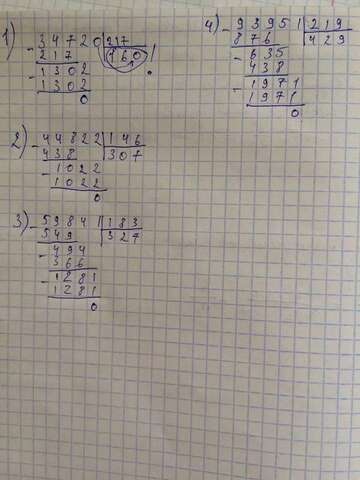 1) - 34720 | 217
217 | 160 !
- 1302
1302
0
2) - 44822 | 146
438 | 307
- 1022
1022
0
3) - 59841 | 183
549 | 327
- 494
366
- 1281
1281
0
4) - 93951 | 219
876 | 429
- 635
438
- 1971
1971
0